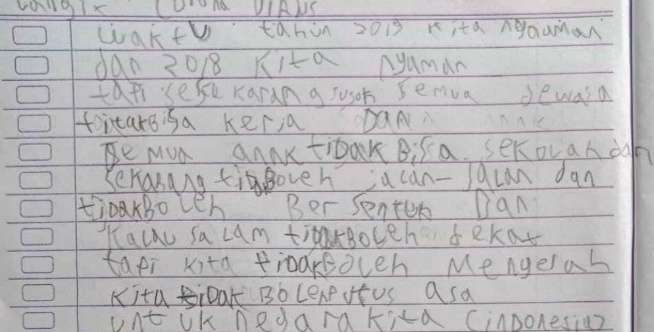 corona VIRUS
waktu tahun 2019 kita nyauman
dan 2018 kita nyaman
tapi sesekarang susah semua dewasa
titakbisa kerja DAN anak
semua anak tidak Bisa sekolah dan
sekarang tidaBoleh jalan-jalan dan
tidakBoleh Bersentuh Dan
Kalau salam tidakBoleh dekat
tapi kita tidakBoleh Mengerah
kita tidak Boleh putus asa
untuk negara kita (indonesia)